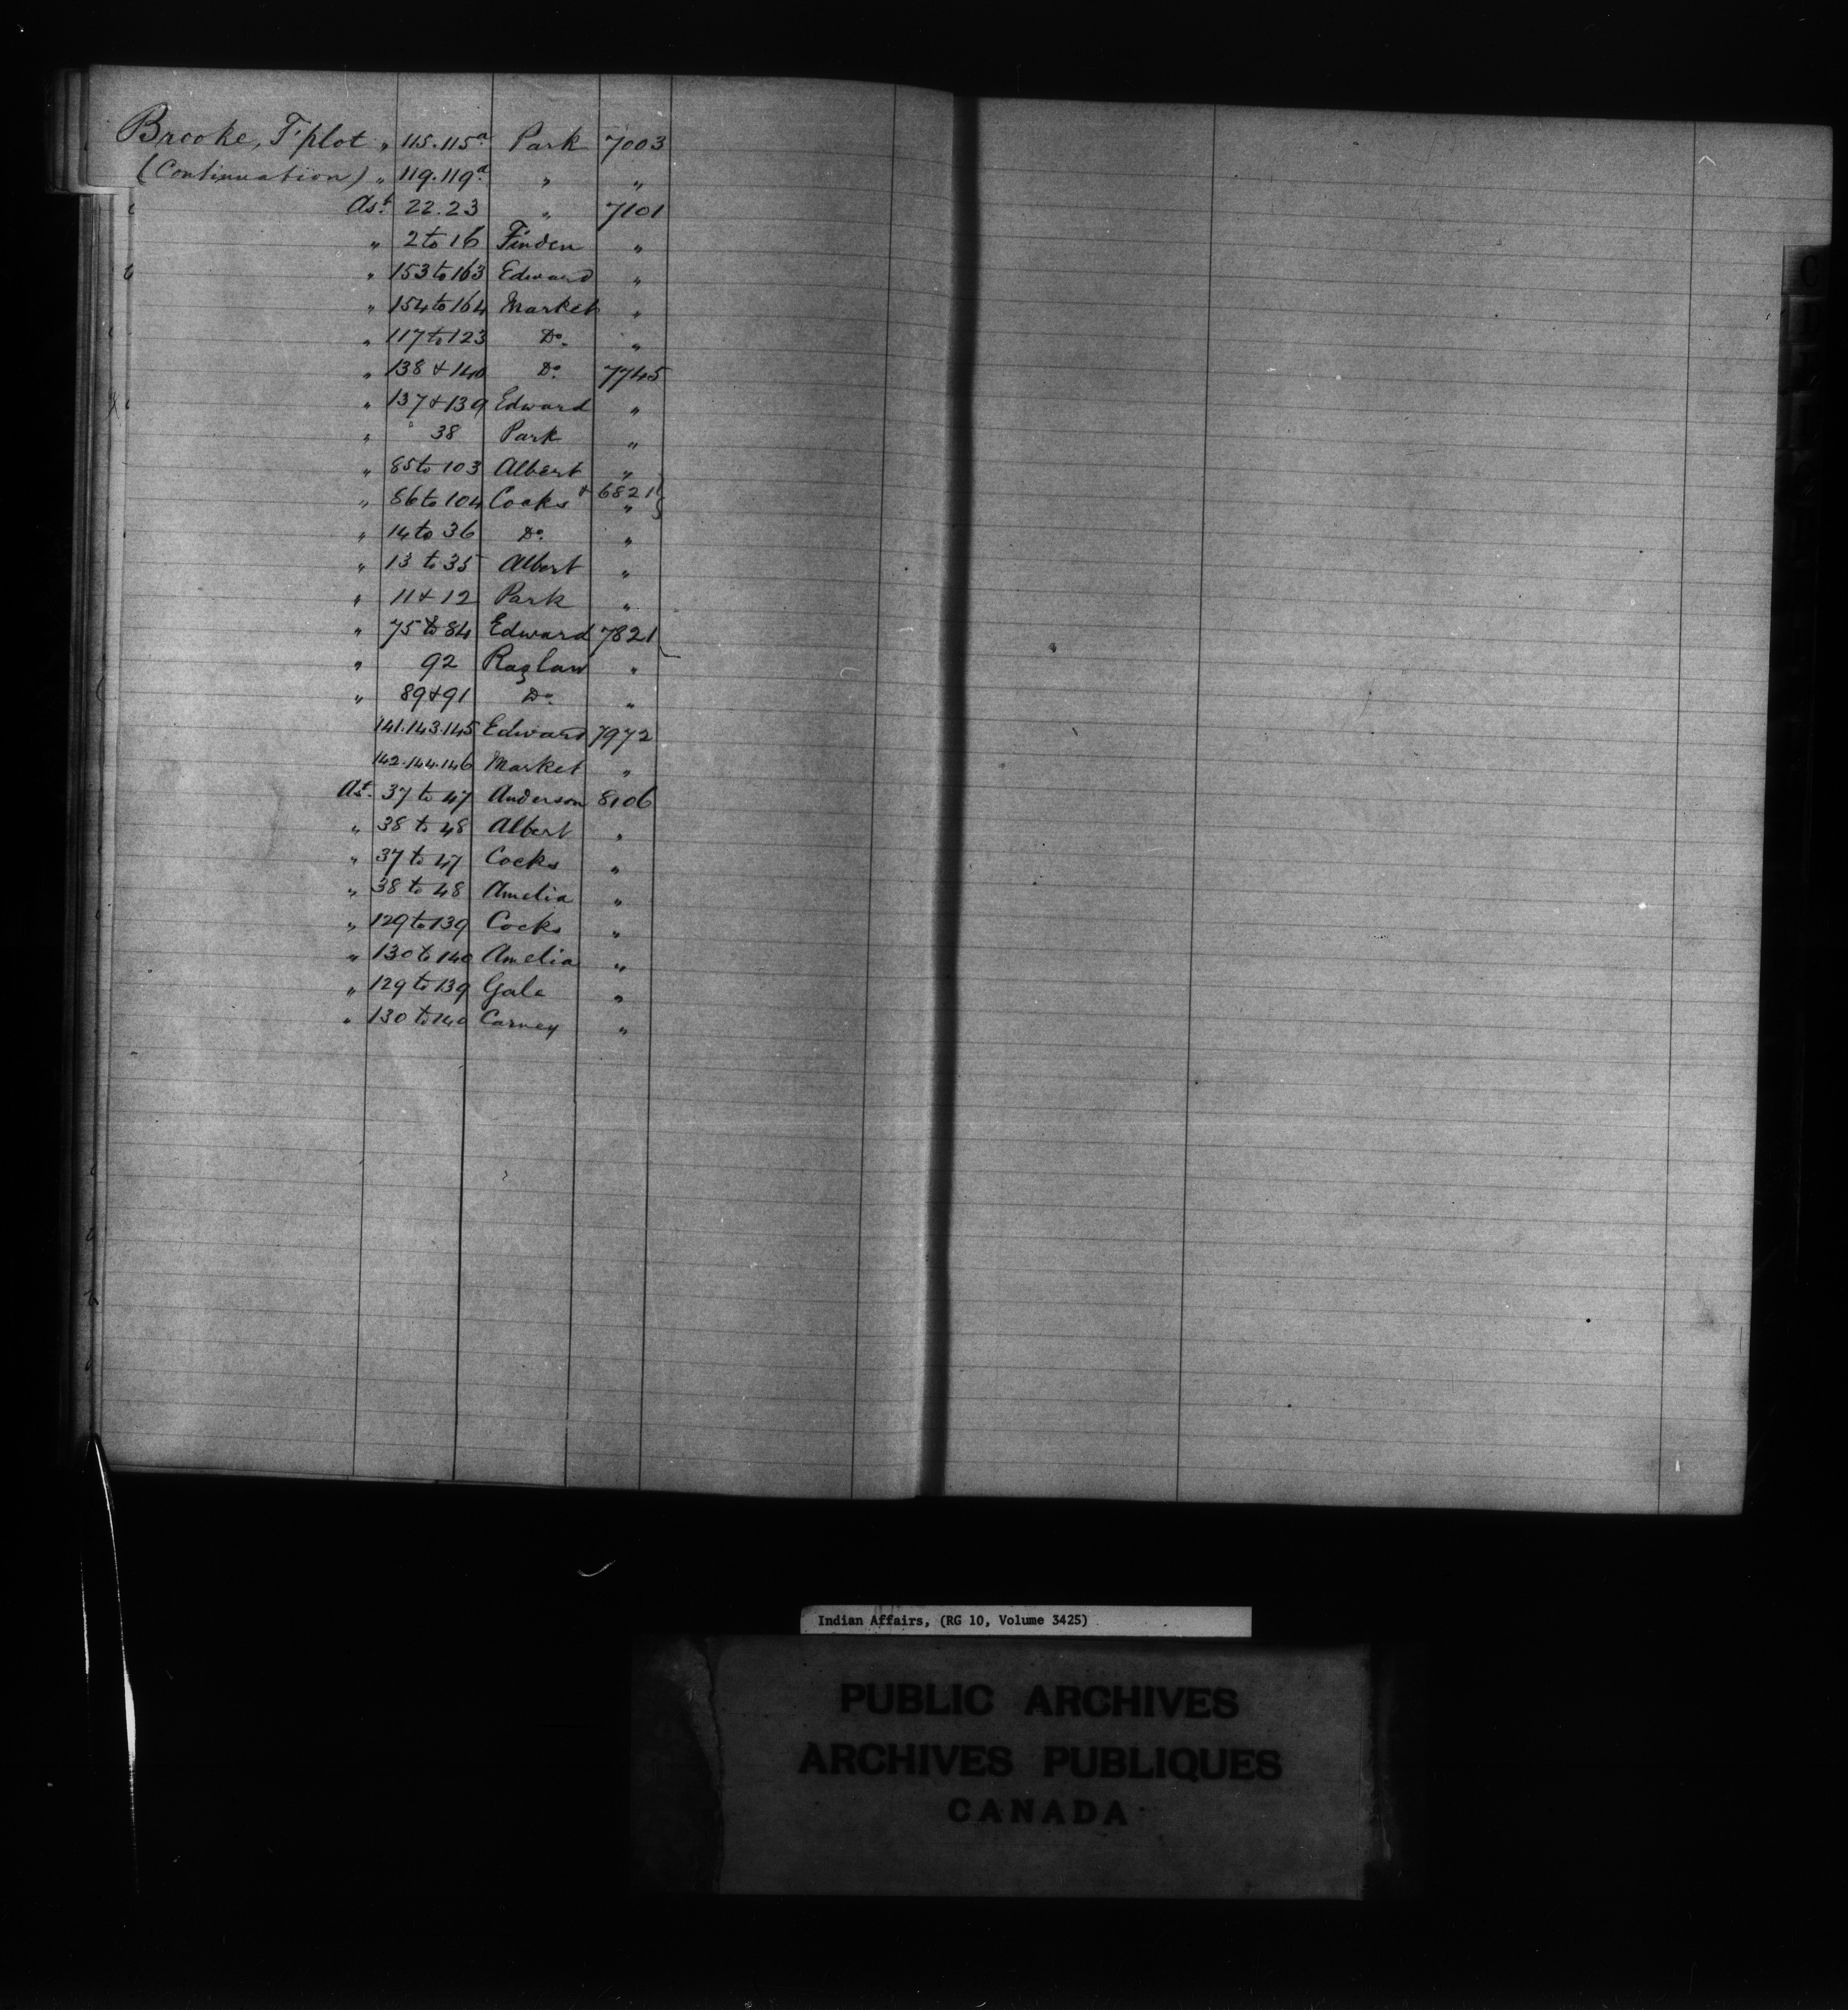 Brooke, T'plot " 115.115a Park 7003
(Continuation) " 119.119a " "
Ast. 22.23 " 7101
" 2 to 16 Finden "
" 153 to 163 Edward "
" 154 to 164 Market "
" 117 to 123 Do. "
" 138 & 140 Do. 7745
" 137 & 139 Edward "
" 38 Park "
" 85 to 103 Albert "
" 86 to 104 Cocks & 6821 "
" 14 to 36 Do. "
" 13 to 35 Albert "
" 11 & 12 Park "
" 75 to 84 Edward 7821
" 92 Raglan "
" 89 & 91 Do. "
141.143.145 Edward 7972
142.144.146 Market "
Ast. 37 to 47 Anderson 8106
" 38 to 48 Albert "
" 37 to 47 Cocks "
" 38 to 48 Amelia "
" 129 to 139 Cocks "
" 130 to 140 Amelia "
" 129 to 139 Gale "
" 130 to 140 Carney "
Indian Affairs, (RG 10, Volume 3425)
PUBLIC ARCHIVES
ARCHIVES PUBLIQUES
CANADA